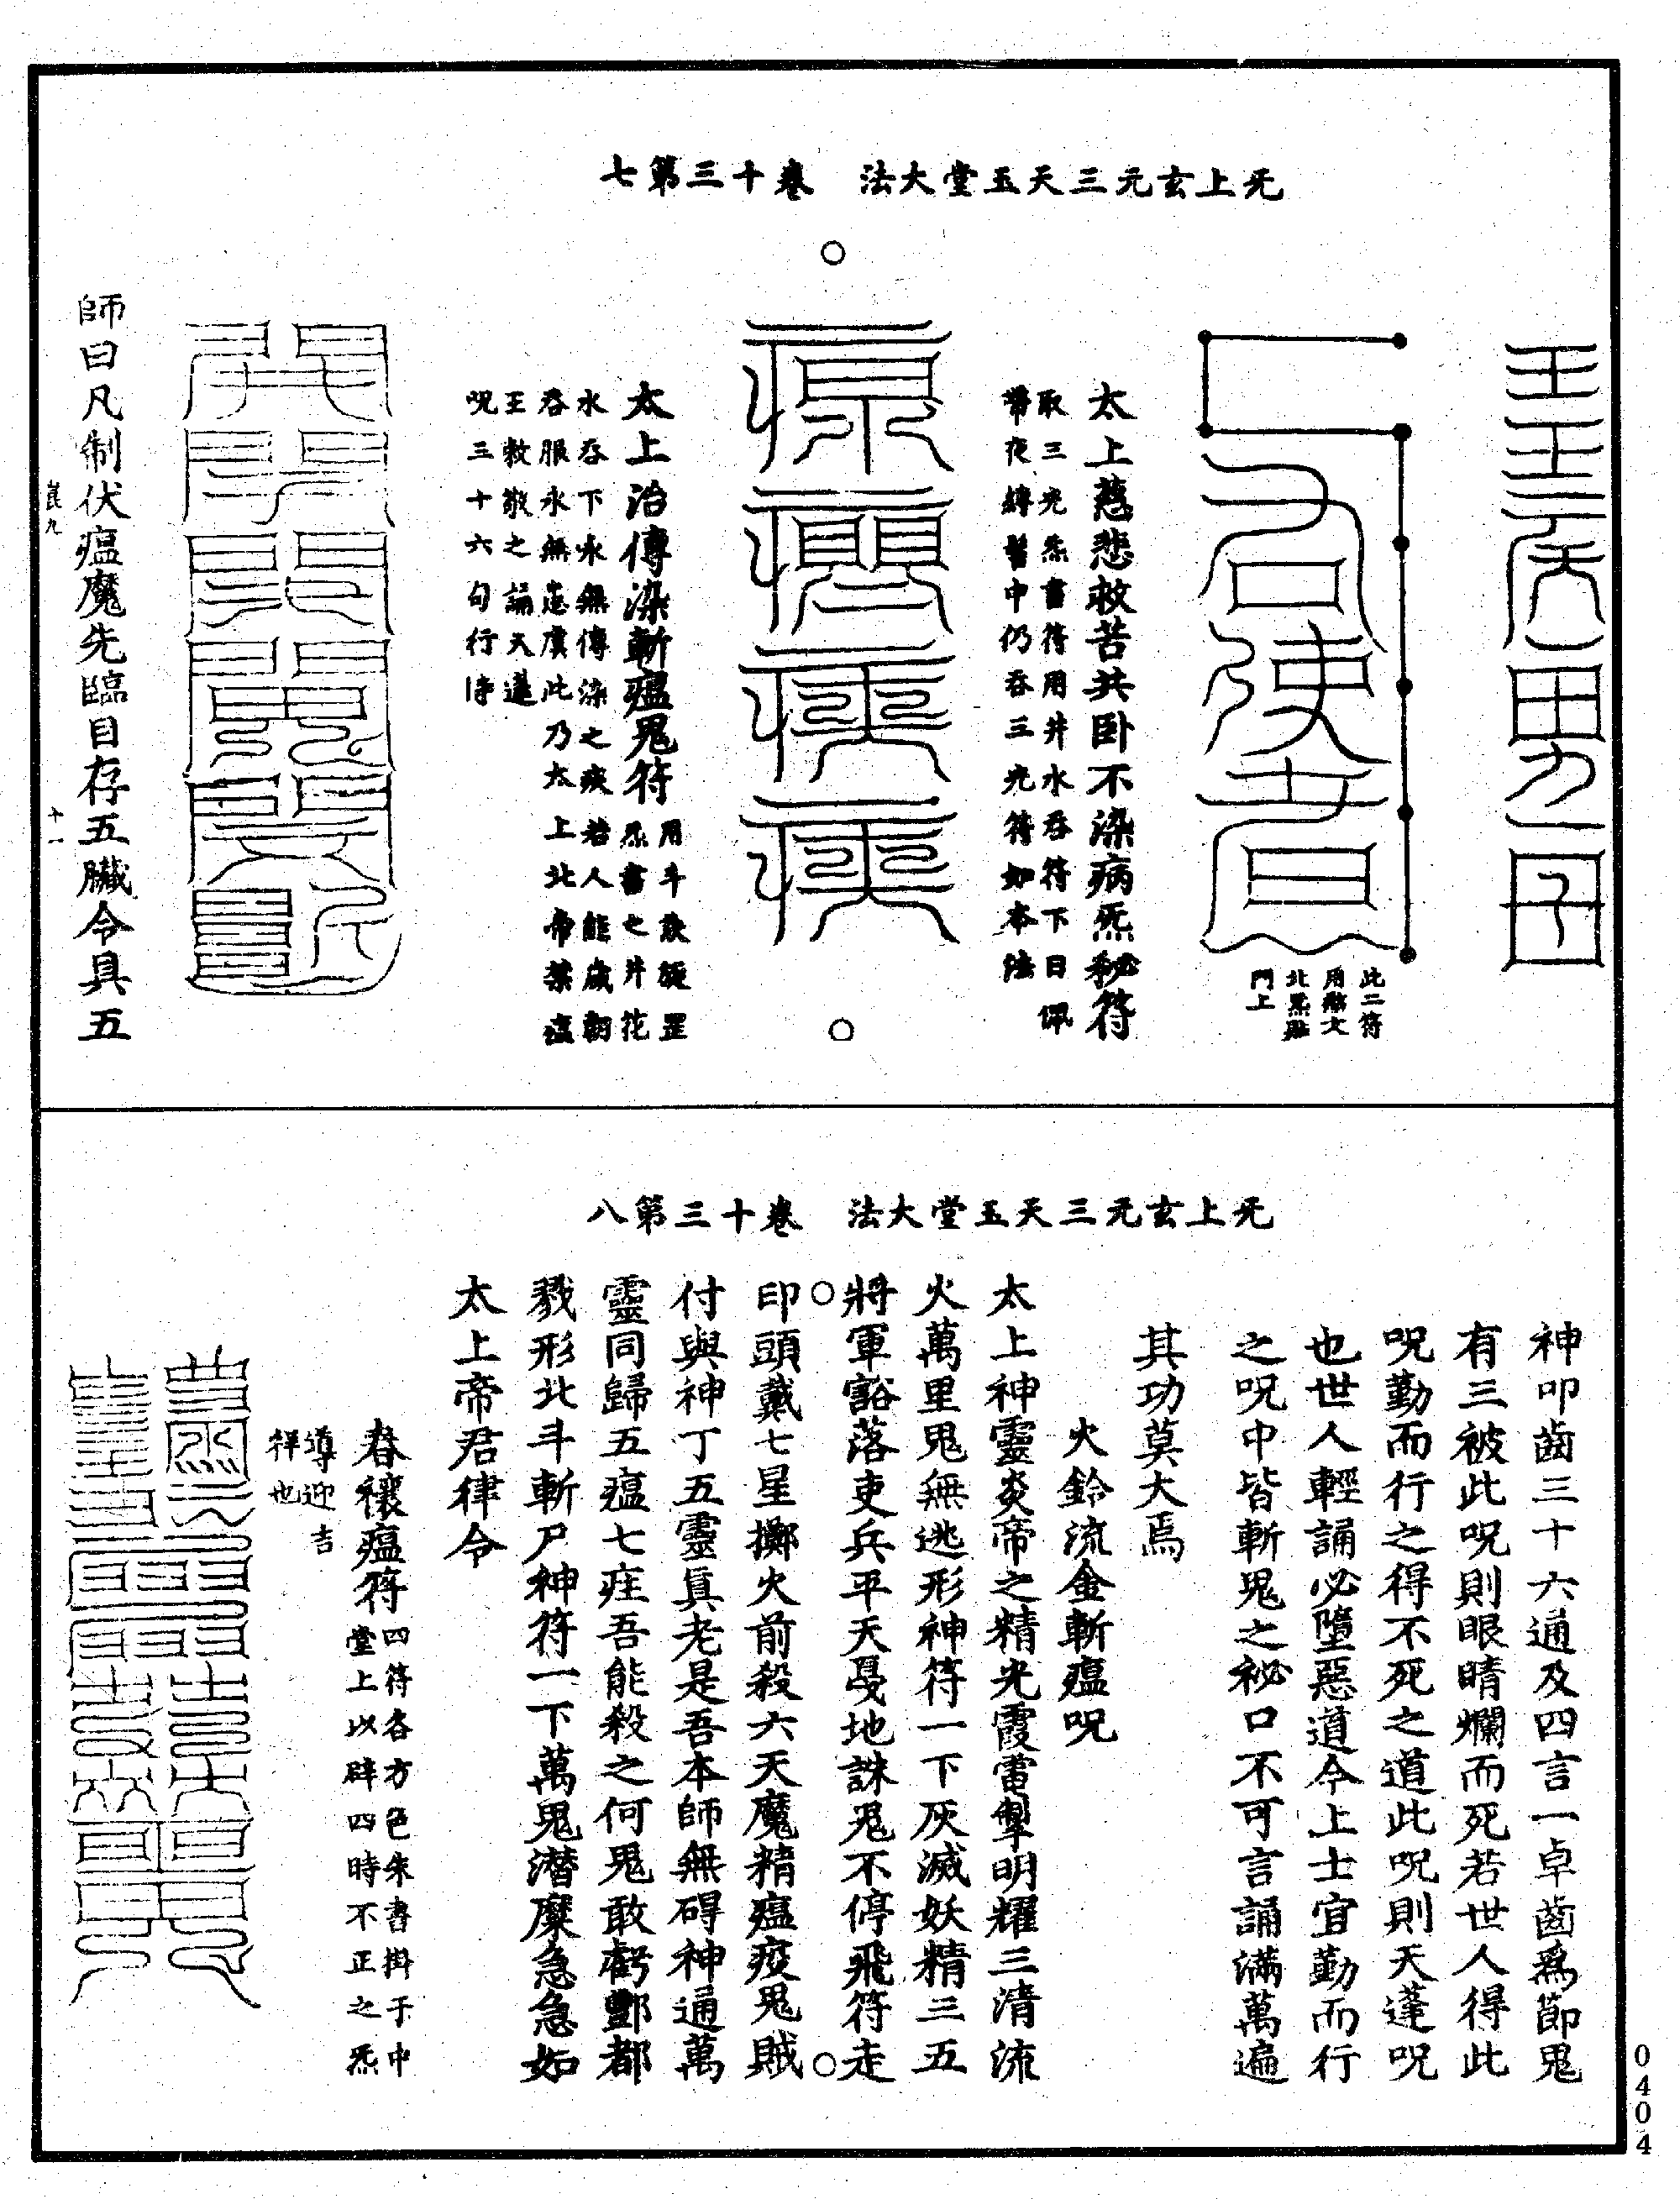 七第三十卷　法大堂玉天三元玄上无
此二符
用黯文
北炁貼
門上
太上慈悲救苦共卧不染病炁秘符
取三光炁書符用井水吞符下日佩
帶夜縛髻中仍吞三光符如本法
太上治傳染斬瘟鬼符
用斗杓綱罡
炁書之井花
水吞下永無傳染之疾若人能歲朝
吞服永無患虞此乃太上北帝禁瘟
王敕敬之誦天蓬
呪三十六句行持
師曰凡制伏瘟魔先臨目存五臟令具五
崑九
十一
八第三十卷　法大堂玉天三元玄上无
神叩齒三十六通及四言一卓齒爲節鬼
有三被此呪則眼睛爛而死若世人得此
呪勤而行之得不死之道此呪則天蓬呪
也世人輕誦必墮惡道令上士宜勤而行
之呪中皆斬鬼之祕口不可言誦滿萬遍
其功莫大焉
火鈴流金斬瘟呪
太上神靈炎帝之精光霞電掣明耀三清流
火萬里鬼無逃形神符一下灰滅妖精三五
將軍豁落吏兵平天戛地誅鬼不停飛符走
印頭戴七星擲火前殺六天魔精瘟疫鬼賊
付與神丁五靈眞老是吾本師無碍神通萬
靈同歸五瘟七疰吾能殺之何鬼敢虧酆都
戮形北斗斬尸神符一下萬鬼潛糜急急如
太上帝君律令
春禳瘟符
四符各方色朱書掛于中
堂上以辟四時不正之炁
導迎吉
祥也
0404